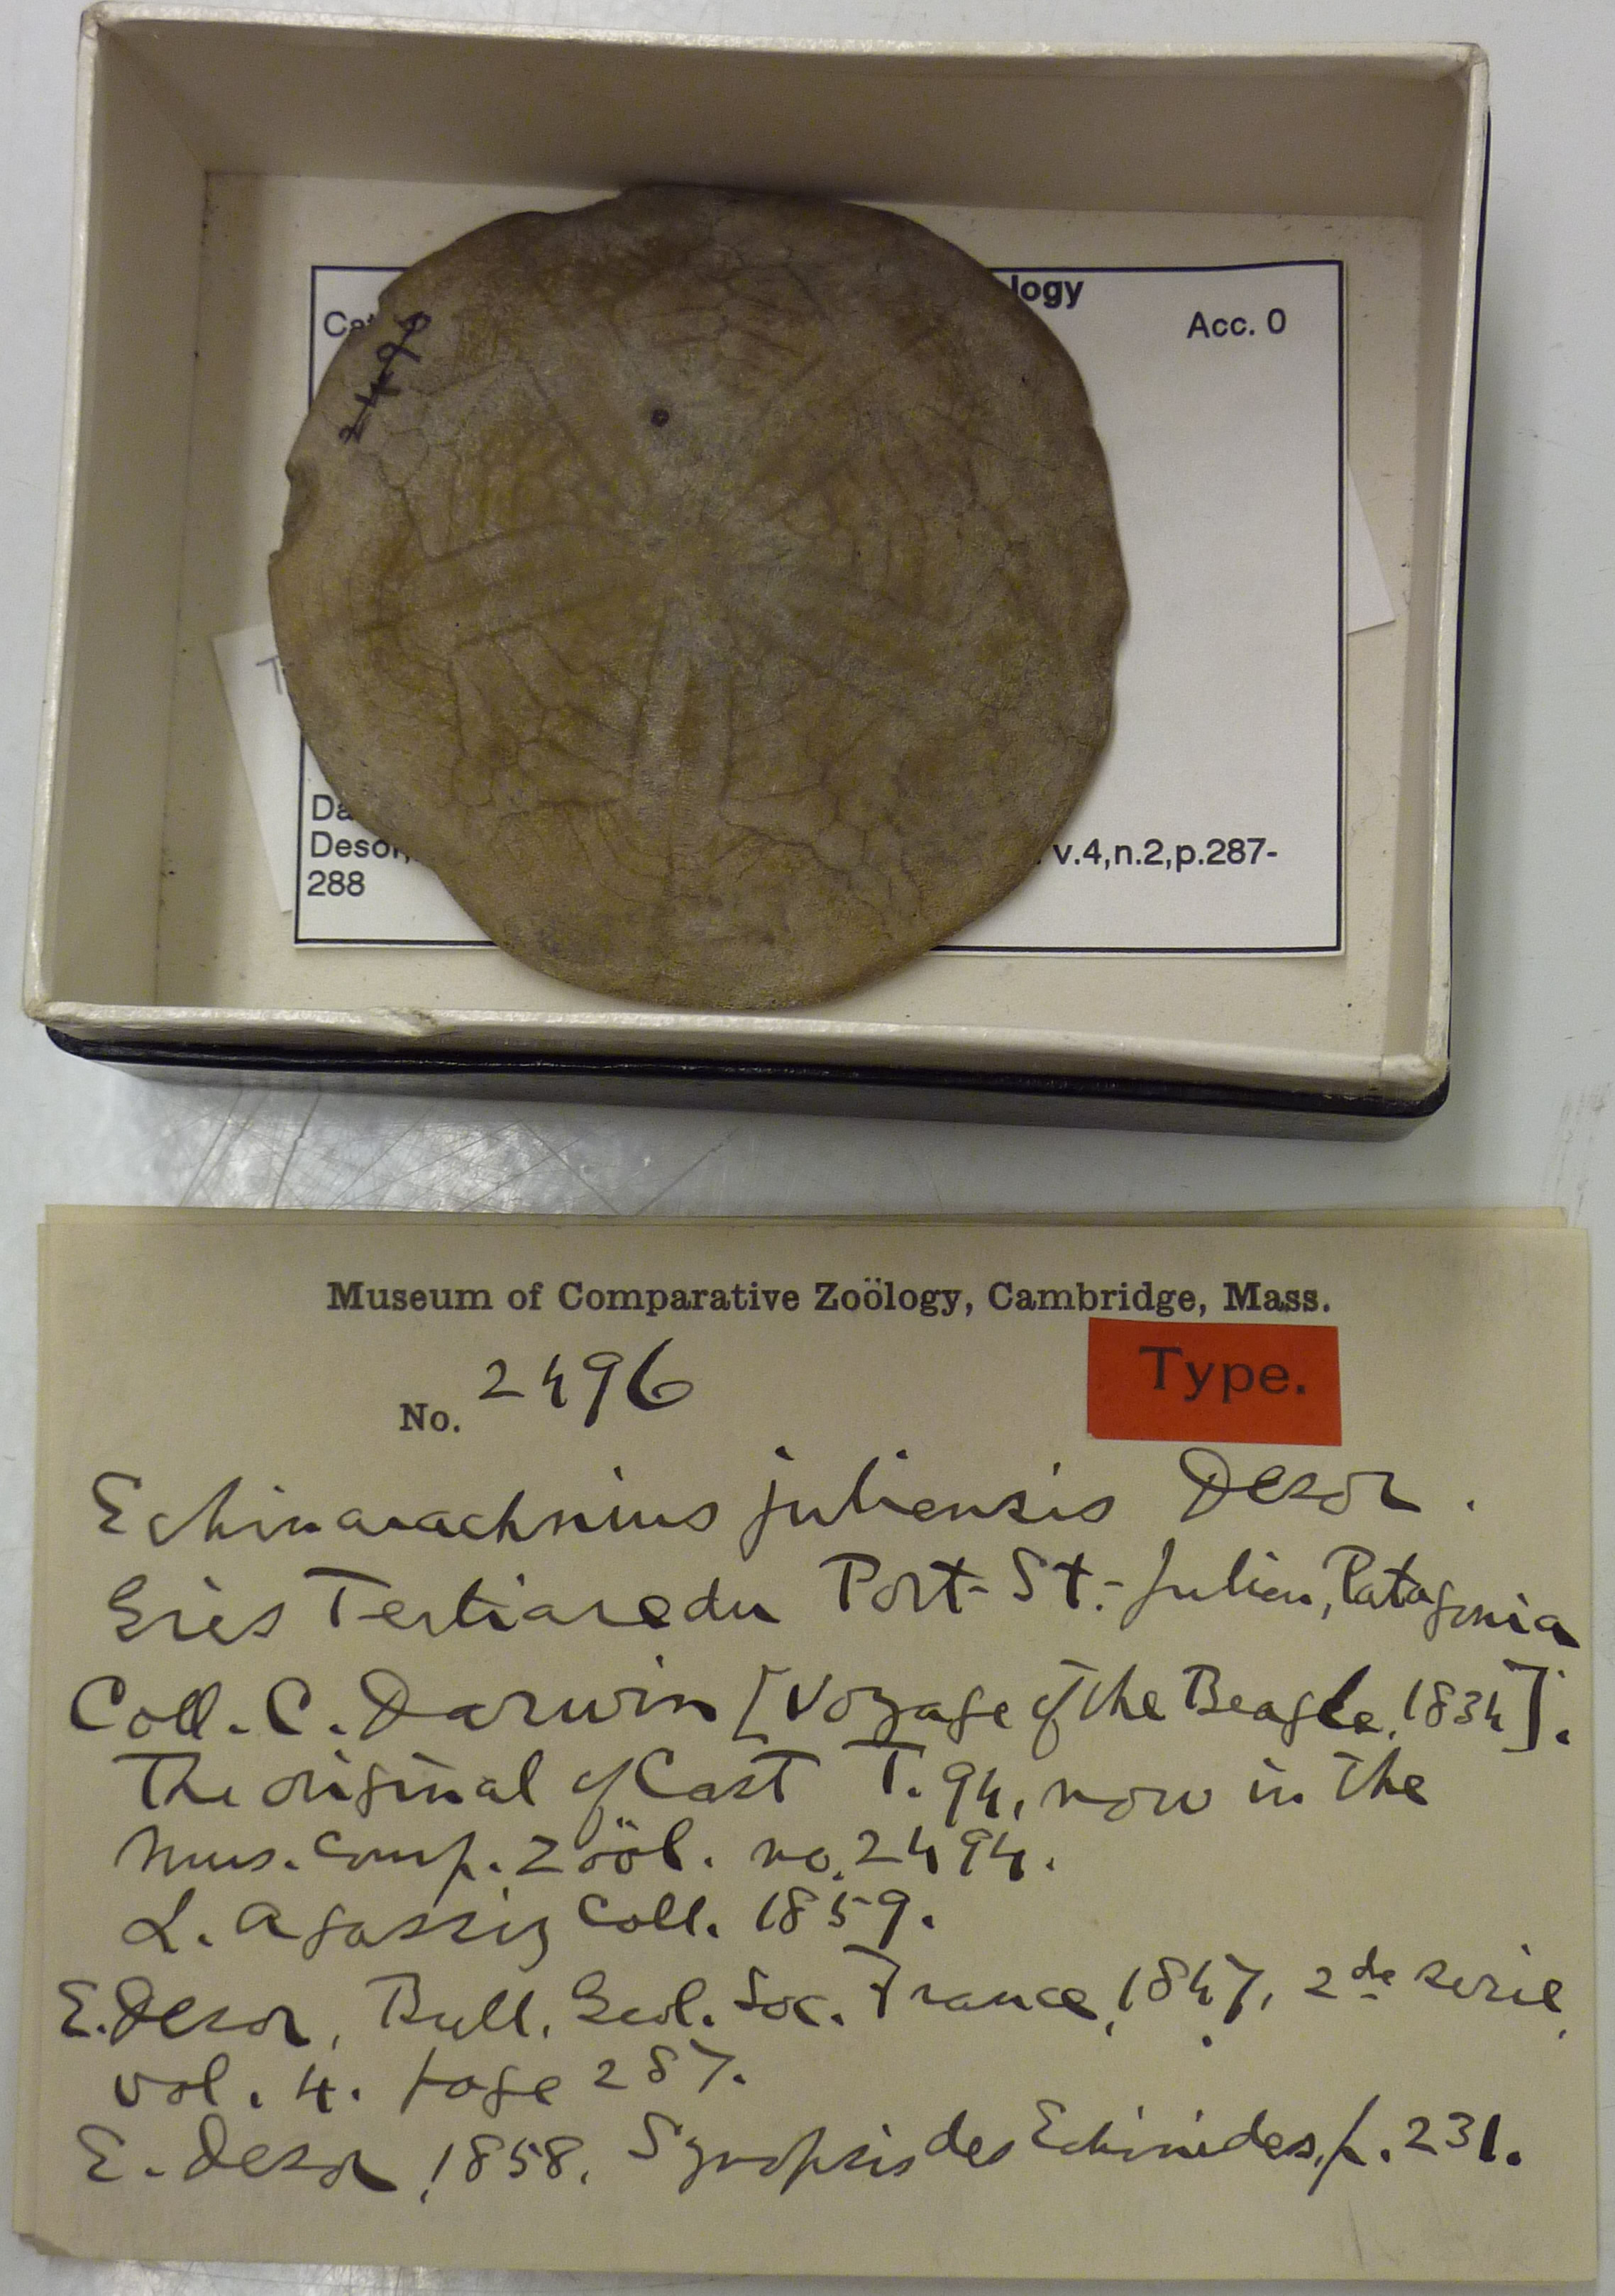 logy
Acc. 0
2496
Da
Desor,
v.4,n.2,p.287-
288
Museum of Comparative Zoölogy, Cambridge, Mass.
No. 2496
Type.
Echinarachnius juliensis Desor.
Grès Tertiaredu Port-St.-Julien, Patagonia
Coll. C. Darwin [Voyage of the Beagle, 1834].
The original of Cast T. 94, now in the
Mus. Comp. Zööl. no. 2494.
L. Agassiz Coll. 1859.
E. Desor, Bull. Geol. Soc. France, 1847, 2de serie,
vol. 4. page 287.
E. Desor, 1858. Synopsis des Echinides, p. 231.